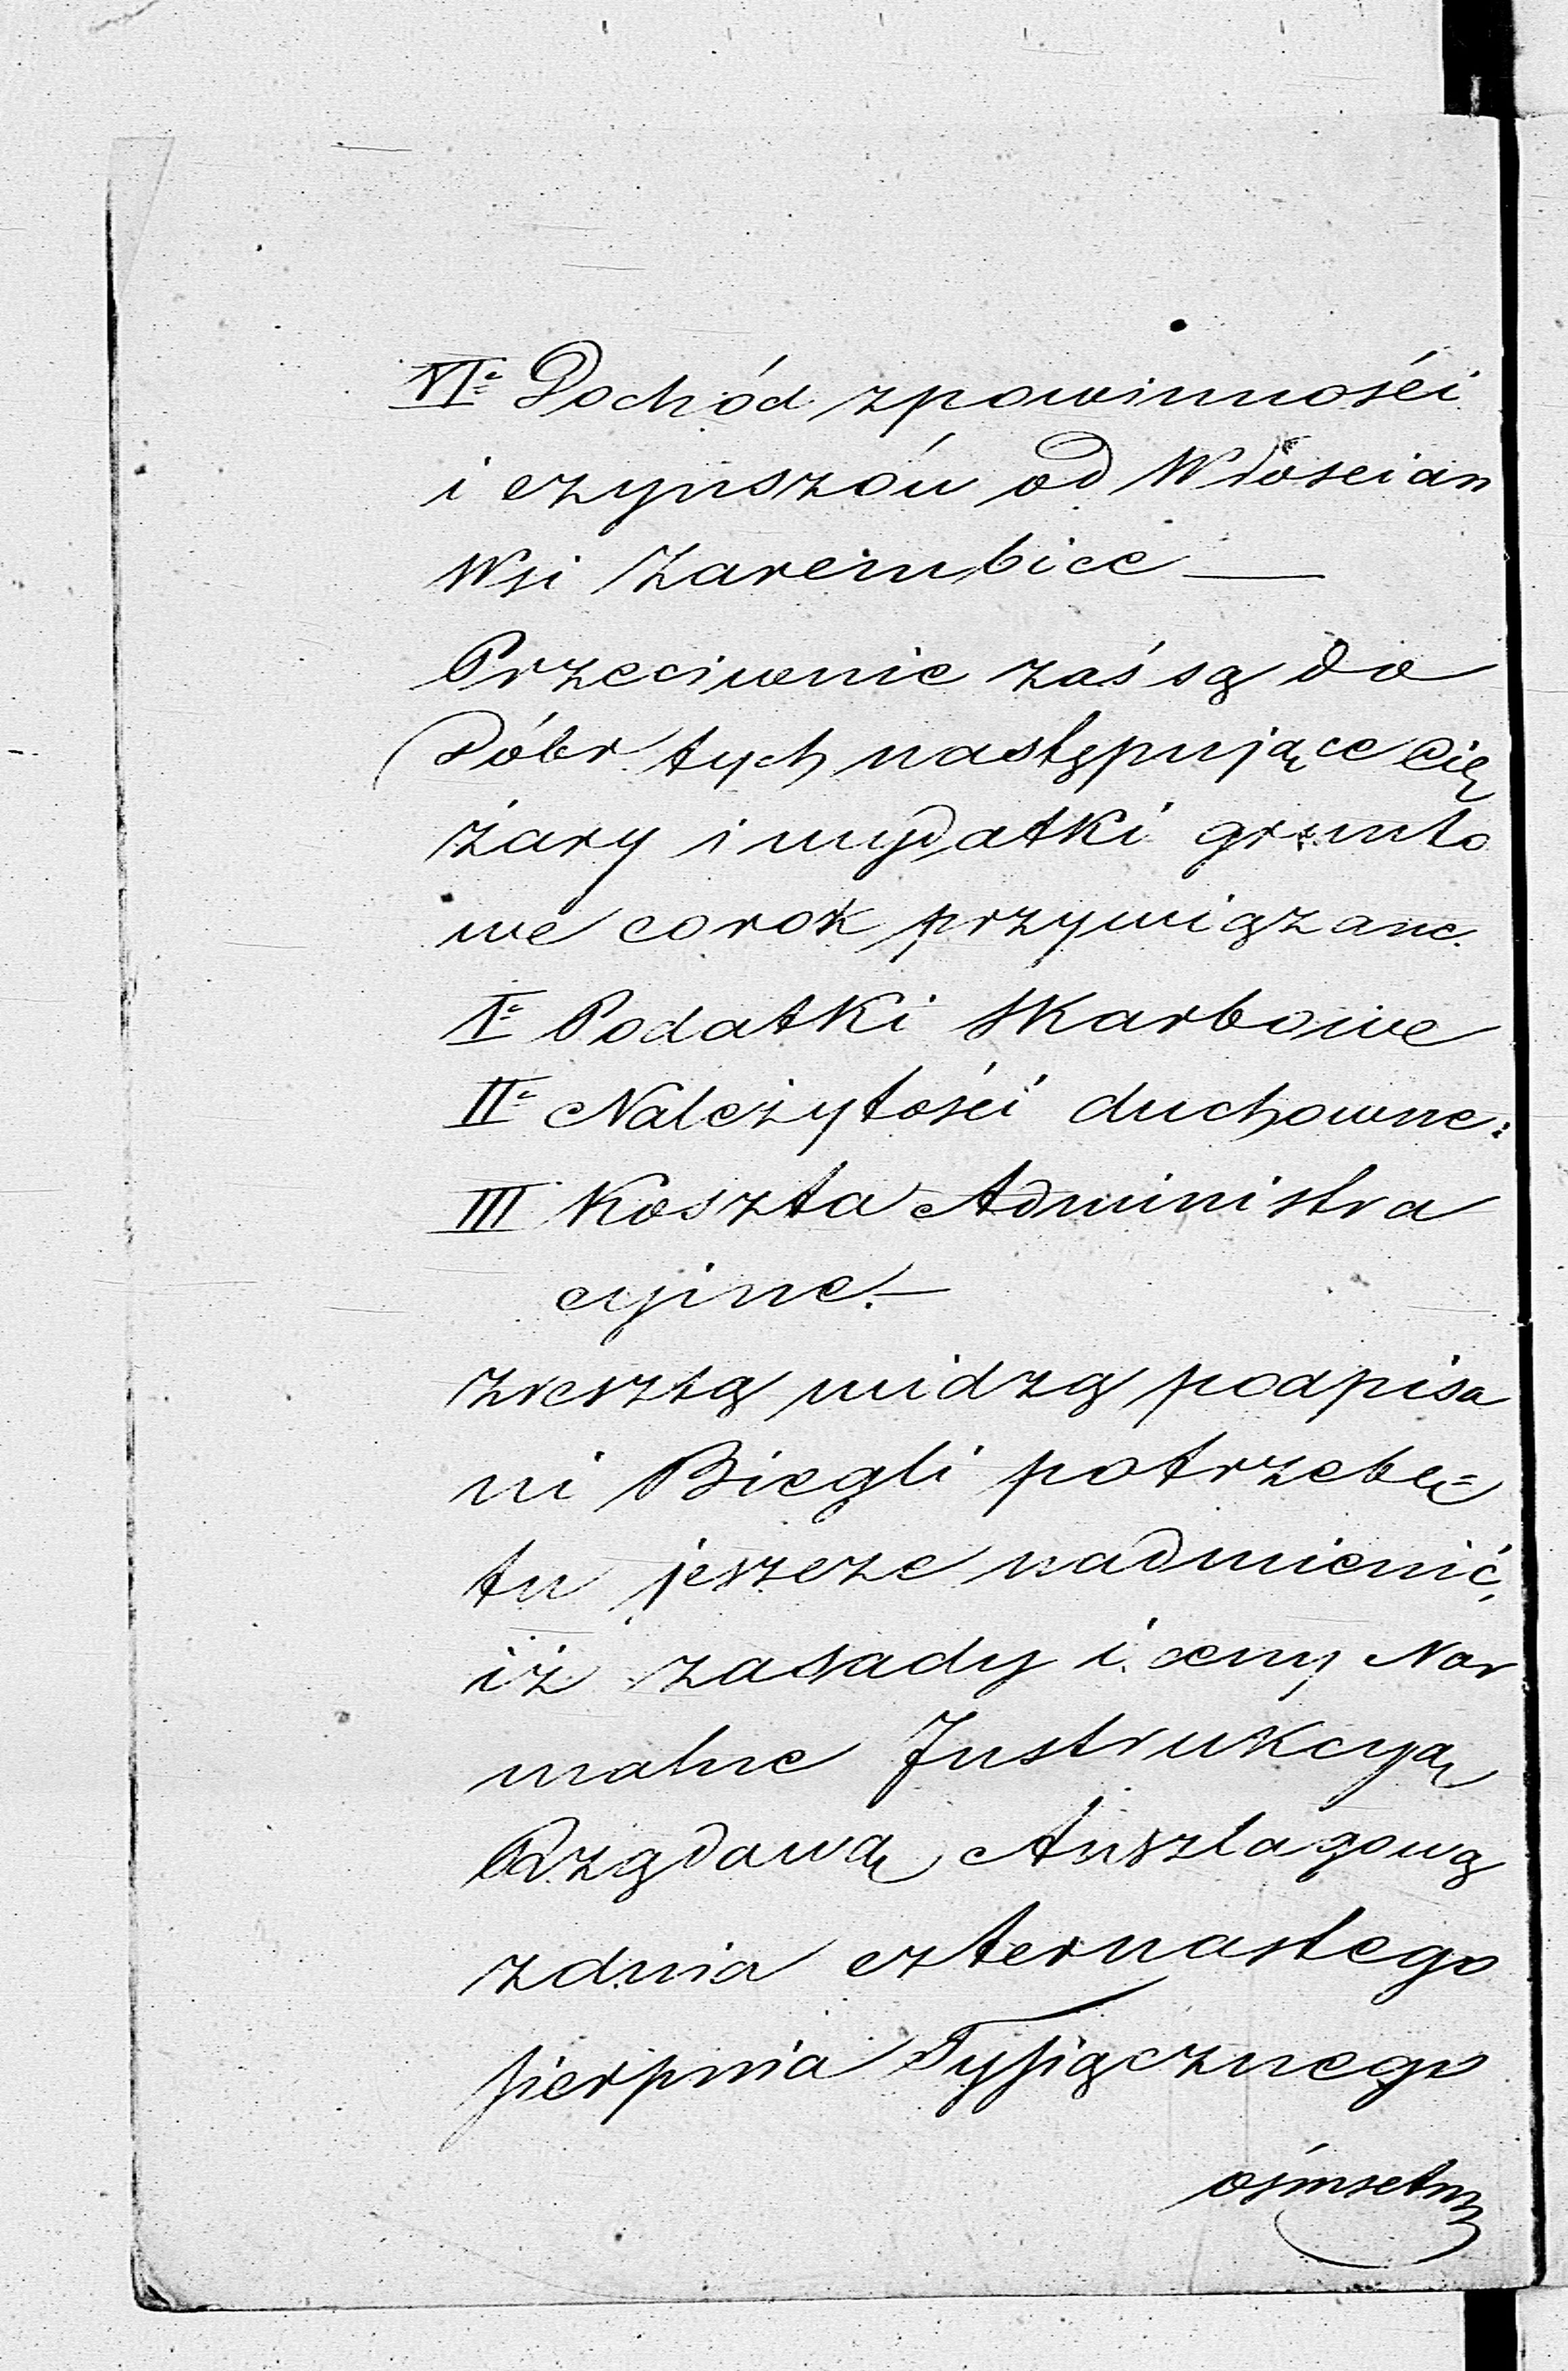 VI. Dochód zpowinności
i czynszów od Włoscian
Wsi Zarembice —
Przeciwnie zaś są do
Dóbr tych następujące Cię
żary i wydatki grunto
we corok przywiązane.
I. Podatki Skarbowe
II. Należytości duchowne:
III Koszta Administra
cyjne. —
Zresztą widzą podpisa
ni Biegli potrzebę
tu jeszcze nadmienić,
iż zasady i ceny Nor
malne Instrukcyą
Rządową Anszlagową
zdnia czternastego
sierpnia Tysiącznego
ośmsetn